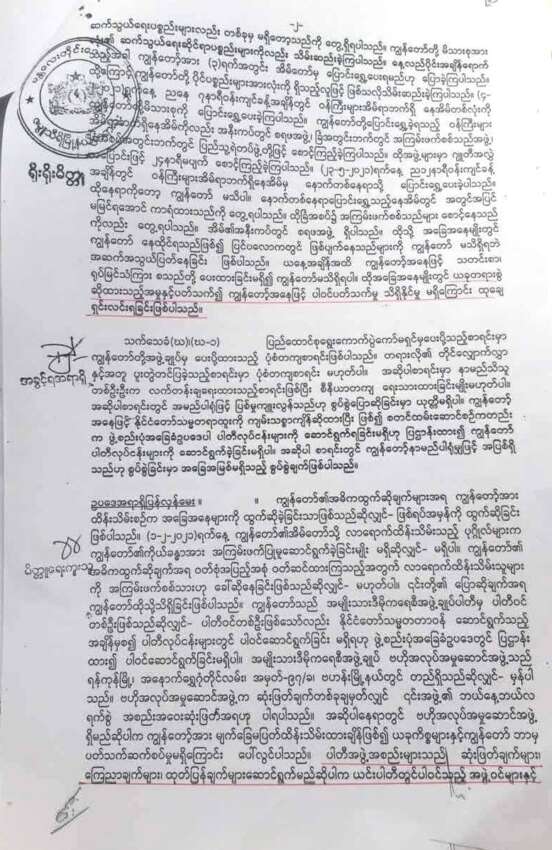 -၂-
ဆက်သွယ်ရေးပစ္စည်းများလည်း တစ်ခုမှ မရှိတော့သည်ကို တွေ့ရှိရပါသည်။ ကျွန်တော်တို့ မိသားစုအား
ဆက်သွယ်ရေးဆိုင်ရာပစ္စည်းများကိုလည်း သိမ်းဆည်းခဲ့ပါသည်။ နေ့လည်ပိုင်းအချိန်ရောက်
ကျွန်တော့်အား (၃)ရက်အတွင်း အိမ်တော်မှ ပြောင်းရွှေ့ပေးရမည်ဟု ပြောခဲ့ပါသည်။
ကျွန်တော်တို့ ပိုင်ပစ္စည်းများအားလုံးကို ရှိသည့်လူဖြင့် ဖြစ်သလိုသိမ်းဆည်းခဲ့ပါသည်။ (၄-
ရက်နေ့ ညနေ ၇နာရီဝန်းကျင်ခန့်အချိန်တွင် ဝန်ကြီးများအိမ်ရာဘက်ရှိ နေအိမ်တစ်လုံးကို
မိသားစုကို ပြောင်းရွှေ့ပေးခဲ့ပါသည်။ ကျွန်တော်တို့ပြောင်းရွှေ့ခဲ့ရသည့် ဝန်ကြီးများ
အိမ်ရာဘက်ရှိနေအိမ်ကိုလည်း အနီးကပ်တွင် စရဖအဖွဲ့၊ ခြံအတွင်းဘက်တွင် အကြမ်းဖက်စစ်သည်အဖွဲ့၊
အပြင်ဘက်တွင် ပြည်သူ့ရဲတပ်ဖွဲ့တို့ဖြင့် စောင့်ကြည့်ခဲ့ပါသည်။ ထိုအဖွဲ့များမှာ ဂျူတီအလှဲ့
အပြောင်းဖြင့် ၂၄နာရီမပျက် စောင့်ကြည့်ခဲ့ကြပါသည်။ (၂၃-၅-၂၀၂၁)ရက်နေ့ ည၁၂နာရီဝန်းကျင်ခန့်
အချိန်တွင် ဝန်ကြီးများအိမ်ရာဘက်ရှိနေအိမ်မှ နောက်တစ်နေရာသို့ ပြောင်းရွှေ့ပေးခဲ့ပါသည်။
ထိုနေရာကိုတော့ ကျွန်တော် မသိပါ။ နောက်တစ်နေရာပြောင်းရွှေ့သည့်နေအိမ်တွင် အတွင်အပြင်
မမြင်ရအောင် ကာရံထားသည်ကို တွေ့ရပါသည်။ ထိုခြံအစပ်၌ အကြမ်းဖက်စစ်သည်များ စောင့်နေသည်
ကိုလည်း တွေ့ရပါသည်။ အိမ်၏အနီးကပ်တွင် စရဖအဖွဲ့ ရှိပါသည်။ ထိုသို့ အခြေအနေမျိုးတွင်
ကျွန်တော် နေထိုင်ရသည်ဖြစ်၍ ပြင်ပလောကတွင် ဖြစ်ပျက်နေသည်များကို ကျွန်တော် မသိရှိရဘဲ
အဆက်အသွယ်ပြတ်နေခြင်း ဖြစ်ပါသည်။ ယနေ့အချိန်အထိ ကျွန်တော့်အနေဖြင့် သတင်းစာ၊
ရုပ်မြင်သံကြား စသည်တို့ ပေးထားခြင်းမရှိ၍ ကျွန်တော်မသိရှိရပါ။ ထိုအခြေအနေမျိုးတွင် ယခုတရားစွဲ
ဆိုထားသည့်အမှုနှင့်ပတ်သက်၍ ကျွန်တော့်အနေဖြင့် ပါဝင်ပတ်သက်မှု သိရှိနိုင်မှု မရှိကြောင်း ထုချေ
ရှင်းလင်းရခြင်းဖြစ်ပါသည်။
ရိုးရိုးမိတ္တူ
သက်သေခံ(ဃ)၊(ဃ-၁) ပြည်ထောင်စုရွေးကောက်ပွဲကော်မရှင်မှပေးပို့သည့်စာရင်းမှာ
ကျွန်တော်တို့အဖွဲ့ချုပ်မှ ပေးပို့ထားသည့် ပုံစံတကျစာရင်းဖြစ်ပါသည်။ တရားလိုဏ် တိုင်လျှောက်လွှာ
နှင့်အတူ ပူးတွဲတင်ပြခဲ့သည့်စာရင်းမှာ ပုံစံတကျစာရင်း မဟုတ်ပါ။ အဆိုပါစာရင်းမှာ နာမည်သိသူ
တစ်ဦးဦးက လက်တန်းချရေးထားသည့်စာရင်းဖြစ်ပြီး စီနီယာတကျ ရေးသားထားခြင်းမျိုးမဟုတ်ပါ။
အဆိုပါစာရင်းတွင် အမည်ပါရုံဖြင့် ပြစ်မှုကျူးလွန်သည်ဟု စွပ်စွဲပြောဆိုခြင်းမှာ ယုတ္တိမရှိပါ။ ကျွန်တော့်
အနေဖြင့် နိုင်ငံတော်သမ္မတရာထူးကို ကျမ်းသစ္စာကျိန်ဆိုထားပြီး ဖြစ်၍ စတင်ထမ်းဆောင်စဉ်ကတည်း
က ဖွဲ့စည်းပုံအခြေခံဥပဒေပါ ပါတီလုပ်ငန်းများကို ဆောင်ရွက်ရခြင်းမရှိဟု ပြဋ္ဌာန်းထား၍ ကျွန်တော်
ပါတီလုပ်ငန်းများကို ဆောင်ရွက်ခဲ့ခြင်းမရှိပါ။ အဆိုပါ စာရင်းတွင် ကျွန်တော့်နာမည်ပါရုံမျှဖြင့် အပြစ်ရှိ
သည်ဟု စွပ်စွဲခြင်းမှာ အခြေအမြစ်မရှိသည့် စွပ်စွဲချက်ဖြစ်ပါသည်။
အခွင့်ရအရာရှိ
ဥပဒေအရာရှိပြန်လှန်မေး ။ ။ ကျွန်တော်၏အဓိကထွက်ဆိုချက်များအရ ကျွန်တော့်အား
ထိန်းသိမ်းစဉ်က အခြေအနေများကို ထွက်ဆိုခဲ့ခြင်းသာဖြစ်သည်ဆိုလျှင်- ဖြစ်ရပ်အမှန်ကို ထွက်ဆိုခြင်း
ဖြစ်ပါသည်။ (၁-၂-၂၀၂၁)ရက်နေ့ ကျွန်တော့်အိမ်တော်သို့ လာရောက်ထိန်းသိမ်းသည့် ပုဂ္ဂိုလ်များက
ကျွန်တော်၏ကိုယ်ခန္ဓာအား အကြမ်းဖက်ပြုမူဆောင်ရွက်ခဲ့ခြင်းမျိုး မရှိဆိုလျှင်- မရှိပါ။ ကျွန်တော်၏
အဓိကထွက်ဆိုချက်အရ ဝတ်စုံအပြည့်အစုံ ဝတ်ဆင်ထားကြသည့်အတွက် လာရောက်ထိန်းသိမ်းသူများ
ကို အကြမ်းဖက်စစ်သားဟု ခေါ်ဆိုနေခြင်းဖြစ်သည်ဆိုလျှင်- မဟုတ်ပါ။ ၎င်းတို့၏ ပြောဆိုချက်အရ
ကျွန်တော်ထိုသို့သိရှိခြင်းဖြစ်ပါသည်။ ကျွန်တော်သည် အမျိုးသားဒီမိုကရေစီအဖွဲ့ချုပ်ပါတီမှ ပါတီဝင်
တစ်ဦးဖြစ်သည်ဆိုလျှင်- ပါတီဝင်တစ်ဦးဖြစ်သော်လည်း နိုင်ငံတော်သမ္မတတာဝန် ဆောင်ရွက်သည့်
အချိန်မှစ၍ ပါတီလုပ်ငန်းများတွင် ပါဝင်ဆောင်ရွက်ခြင်း မရှိရဟု ဖွဲ့စည်းပုံအခြေခံဥပဒေတွင် ပြဋ္ဌာန်း
ထား၍ ပါဝင်ဆောင်ရွက်ခြင်းမရှိပါ။ အမျိုးသားဒီမိုကရေစီအဖွဲ့ချုပ် ဗဟိုအလုပ်အမှုဆောင်အဖွဲ့သည်
ရန်ကုန်မြို့၊ အနောက်ရွှေဂုံတိုင်လမ်း၊ အမှတ်-၉၇/ခ၊ ဗဟန်းမြို့နယ်တွင် တည်ရှိသည်ဆိုလျှင်- မှန်ပါ
သည်။ ဗဟိုအလုပ်အမှုဆောင်အဖွဲ့က ဆုံးဖြတ်ချက်တစ်ခုချမှတ်လျှင် ၎င်းအဖွဲ့၏ ဘယ်နေ့ဘယ်လ
ရက်စွဲ အစည်းအဝေးဆုံးဖြတ်အရဟု ပါရပါသည်။ အဆိုပါနေရာတွင် ဗဟိုအလုပ်အမှုဆောင်အဖွဲ့
ရှိမည်ဆိုပါက ကျွန်တော့်အား မျက်ခြေမပြတ်ထိန်းသိမ်းထားချိန်ဖြစ်၍ ယခုကိစ္စများနှင့်ကျွန်တော် ဘာမှ
ပတ်သက်ဆက်စပ်မှုမရှိကြောင်း ပေါ်လွင်ပါသည်။ ပါတီအဖွဲ့အစည်းများသည် ဆုံးဖြတ်ချက်များ၊
ကြေညာချက်များ၊ ထုတ်ပြန်ချက်များဆောင်ရွက်မည်ဆိုပါက ယင်းပါတီတွင်ပါဝင်သည့် အဖွဲ့ဝင်များနှင့်
မိတ္တူရေးကူးသူ